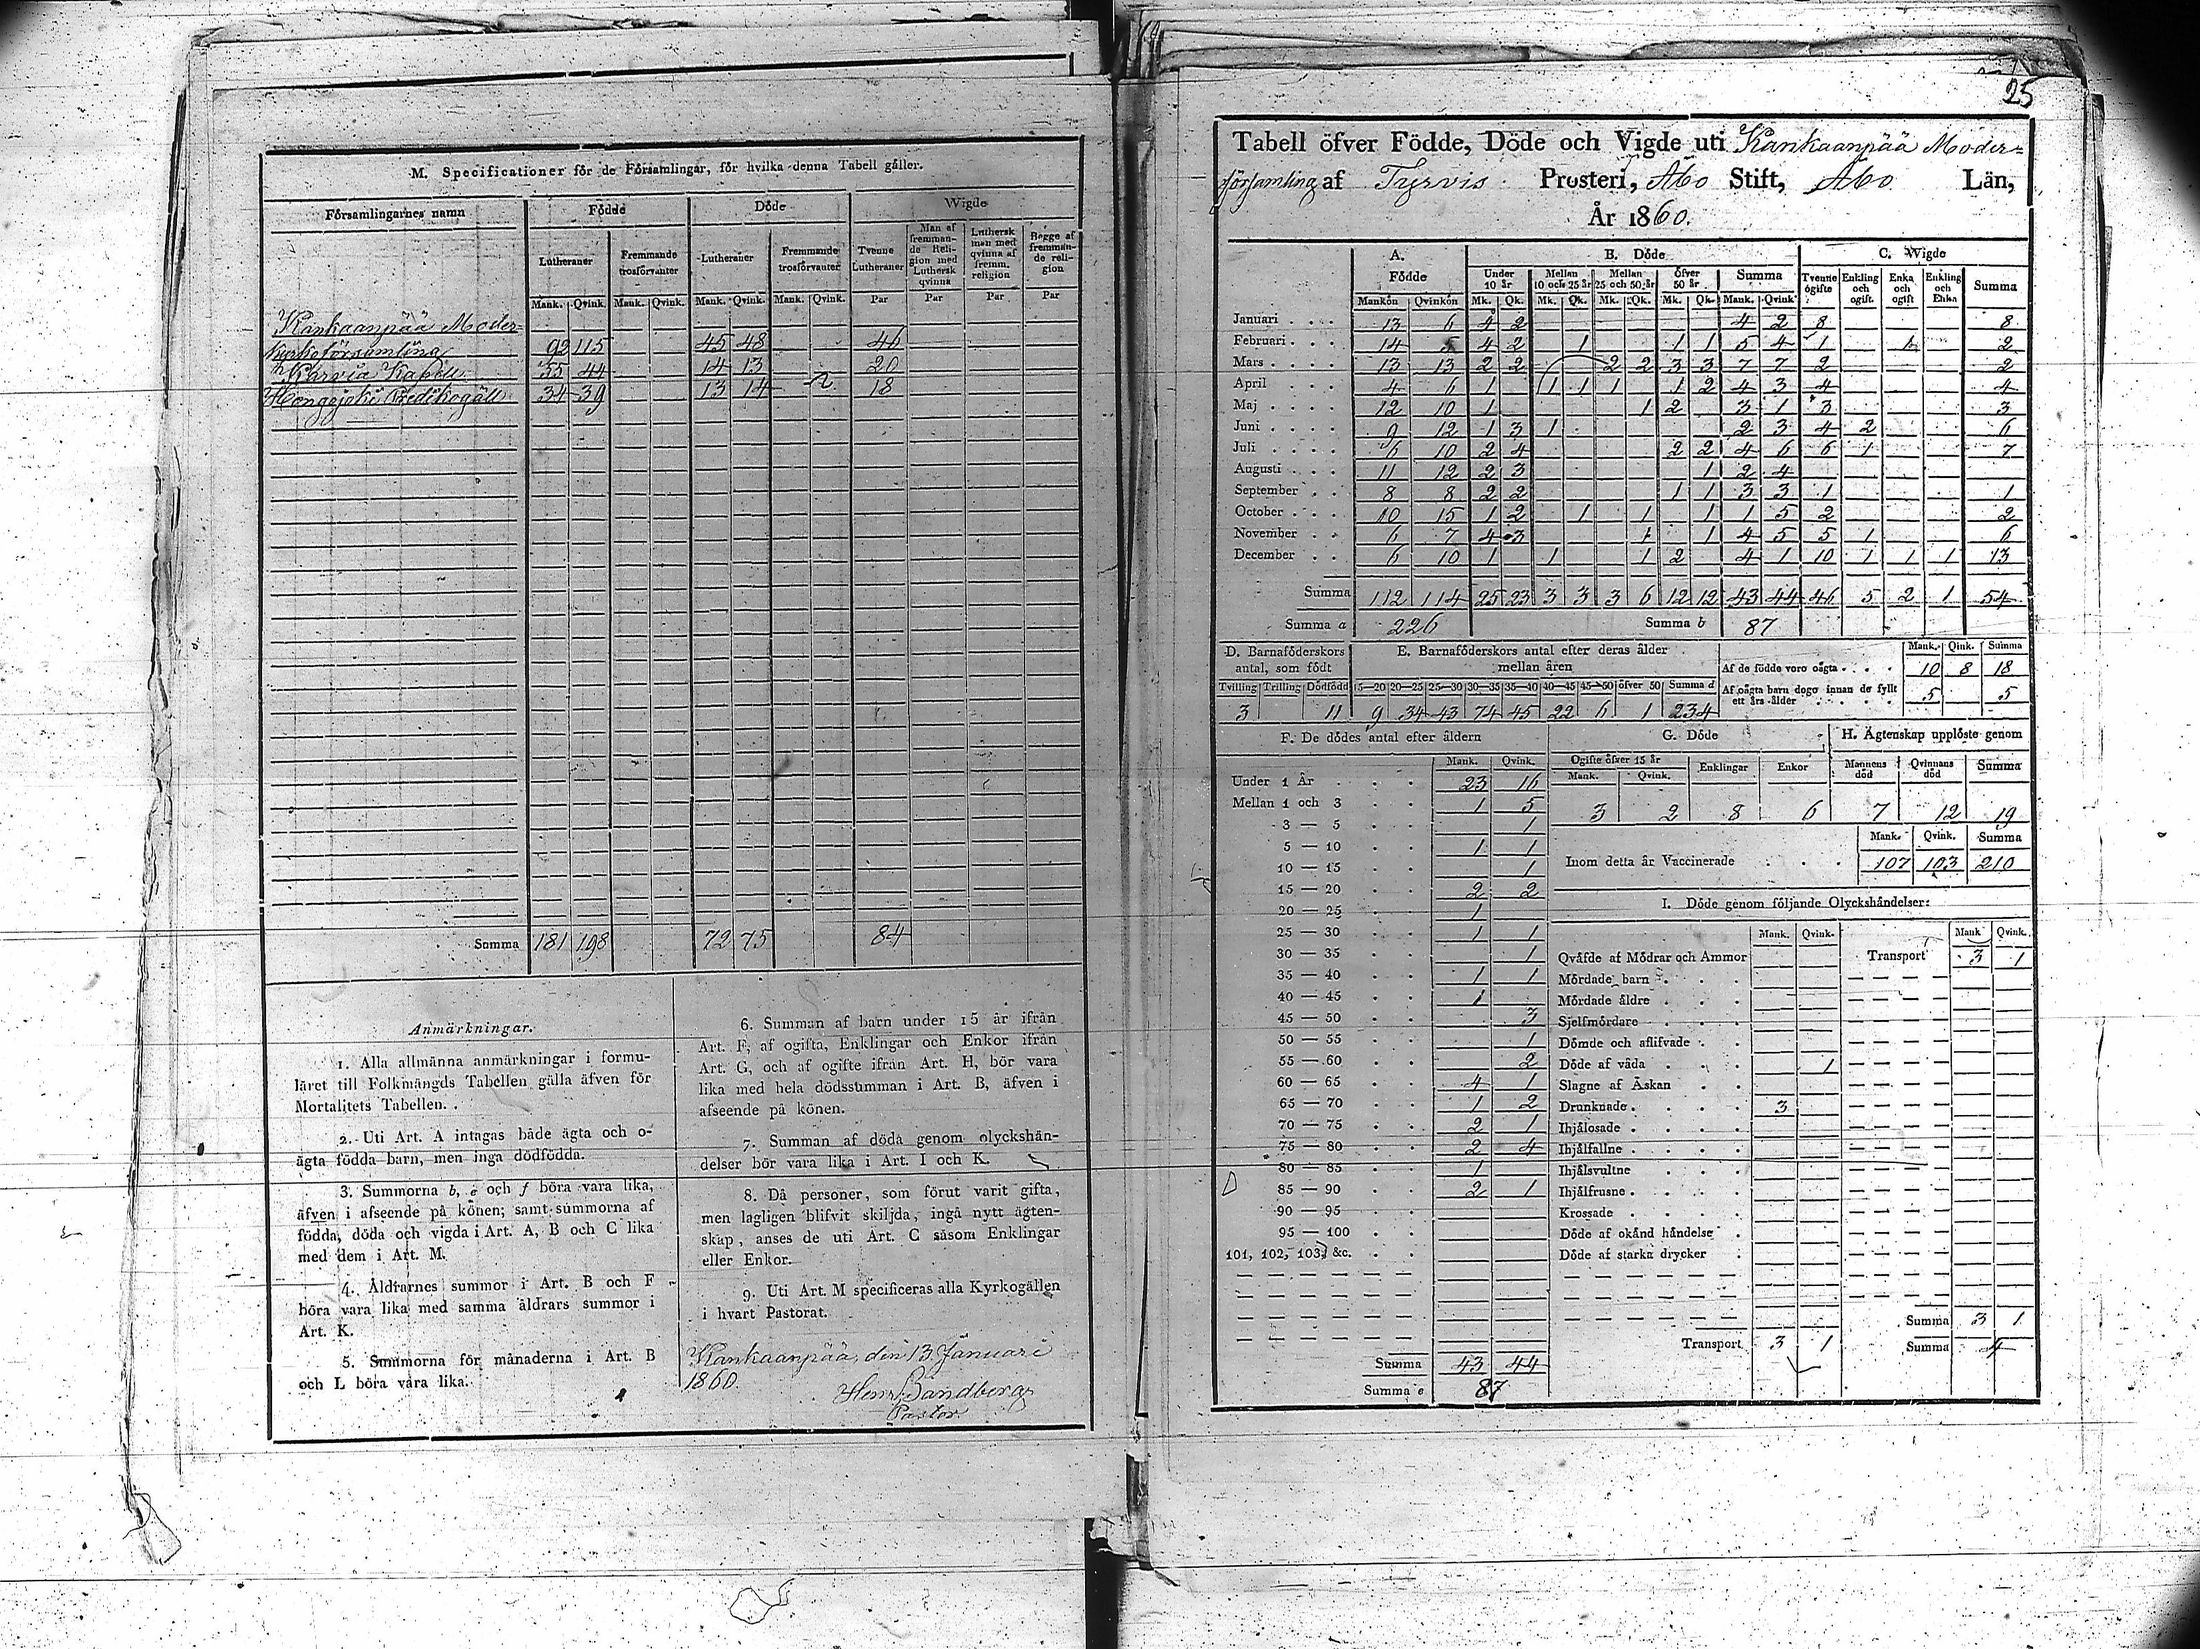 M. Specificationer för de Församlingar, för hvilka denna Tabell gäller.
Församlingarnes namn Födde Döde Wigde
Lutheraner Fremmande trosförvanter Lutheraner Fremmande trosförvanter Tvenne Lutheraner Man af fremmande Religion med Luthersk qvinna Luthersk man med qvinna af fremm. religion Begge af fremmande religion
Mank. Qvink. Mank. Qvink. Mank. Qvink. Mank. Qvink. Par Par Par Par
Kankaanpää Moder-
kyrkoförsamling 92 115 45 48 46
Karvia Kapell 55 44 14 13 20
Hongojoki Predikogäll 34 39 13 14 18
Summa 181 198 72 75 84
Anmärkningar.
1. Alla allmänna anmärkningar i formu-
läret till Folkmängds Tabellen gälla äfven för
Mortalitets Tabellen.
2. Uti Art. A intagas både ägta och o-
ägta födda barn, men inga dödfödda.
3. Summorna b, e och f böra vara lika,
äfven i afseende på könen; samt summorna af
födda, döda och vigda i Art. A, B och C lika
med dem i Art. M.
4. Åldrarnes summor i Art. B och F
böra vara lika med samma åldrars summor i
Art. K.
5. Summorna för månaderna i Art. B
och L böra vara lika.
6. Summan af barn under 15 år ifrån
Art. F, af ogifta, Enklingar och Enkor ifrån
Art. G, och af ogifte ifrån Art. H, bör vara
lika med hela dödssumman i Art. B, äfven i
afseende på könen.
7. Summan af döda genom olyckshän-
delser bör vara lika i Art. I och K.
8. Då personer, som förut varit gifta,
men lagligen blifvit skiljda, ingå nytt ägten-
skap, anses de uti Art. C såsom Enklingar
eller Enkor.
9. Uti Art. M specificeras alla Kyrkogällen
i hvart Pastorat.
Kankaanpää, den 13 Januari
1860.
Henr. Sandberg
Pastor
25
Tabell öfver Födde, Döde och Vigde uti Kankaanpää Moder-
församling af Tyrvis Prosteri, Åbo Stift, Åbo Län,
År 1860.
A. Födde B. Döde C. Wigde
Under 10 år Mellan 10 och 25 år Mellan 25 och 50 år Öfver 50 år Summa Tvenne ogifte Enkling och ogift. Enka och ogift Enkling och Enka Summa
Mankön Qvinkön Mk. Qk. Mk. Qk. Mk. Qk. Mk. Qk. Mank. Qvink.
Januari 13 6 4 2 4 2 8 8
Februari 14 5 4 2 1 1 1 5 4 1 1 2
Mars 13 13 2 2 2 2 3 3 7 7 2 2
April 4 6 1 1 1 1 1 2 4 3 4 4
Maj 12 10 1 1 2 3 1 3 3
Juni 9 12 1 3 1 2 3 4 2 6
Juli 6 10 2 4 2 2 4 6 6 1 7
Augusti 11 12 2 3 1 2 4
September 8 8 2 2 1 1 3 3 1 1
October 10 15 1 2 1 1 1 1 5 2 2
November 6 7 4 3 1 1 4 5 5 1 6
December 6 10 1 1 1 2 4 1 10 1 1 1 13
Summa 112 114 25 23 3 3 3 6 12 12 43 44 46 5 2 1 54
Summa a 226 Summa b 87
D. Barnaföderskors antal, som födt
Tvilling Trilling Dödfödd
3 11
E. Barnaföderskors antal efter deras ålder
mellan åren
15—20 20—25 25—30 30—35 35—40 40—45 45—50 öfver 50 Summa d
9 34 43 74 45 22 6 1 234
Mank. Qink. Summa
Af de födde voro oägta 10 8 18
Af oägta barn dogo innan de fyllt
ett års ålder 5 5
F. De dödes antal efter åldern
Mank. Qvink.
Under 1 År 23 16
Mellan 1 och 3 1 5
3 — 5 1
5 — 10 1 1
10 — 15 1
15 — 20 2 2
20 — 25 1
25 — 30 1 1
30 — 35 1
35 — 40 1 1
40 — 45 1
45 — 50 3
50 — 55 1
55 — 60 2
60 — 65 4 1
65 — 70 1 2
70 — 75 2 1
75 — 80 2 4
80 — 85 1
85 — 90 2 1
90 — 95
95 — 100
101, 102, 103, &c.
Summa 43 44
Summa e 87
G. Döde
Ogifte öfver 15 år Enklingar Enkor
Mank. Qvink.
3 2 8 6
H. Ägtenskap upplöste genom
Mannens död Qvinnans död Summa
7 12 19
Mank. Qvink. Summa
Inom detta år Vaccinerade 107 103 210
I. Döde genom följande Olyckshändelser:
Mank. Qvink. Mank Qvink.
Qväfde af Mödrar och Ammor Transport 3 1
Mördade barn
Mördade äldre
Sjelfmördare
Dömde och aflifvade
Döde af våda 1
Slagne af Åskan
Drunknade 3
Ihjälosade
Ihjälfallne
Ihjälsvultne
Ihjälfrusne
Krossade
Döde af okänd händelse
Döde af starka drycker
Summa 3 1
Transport 3 1 Summa 4